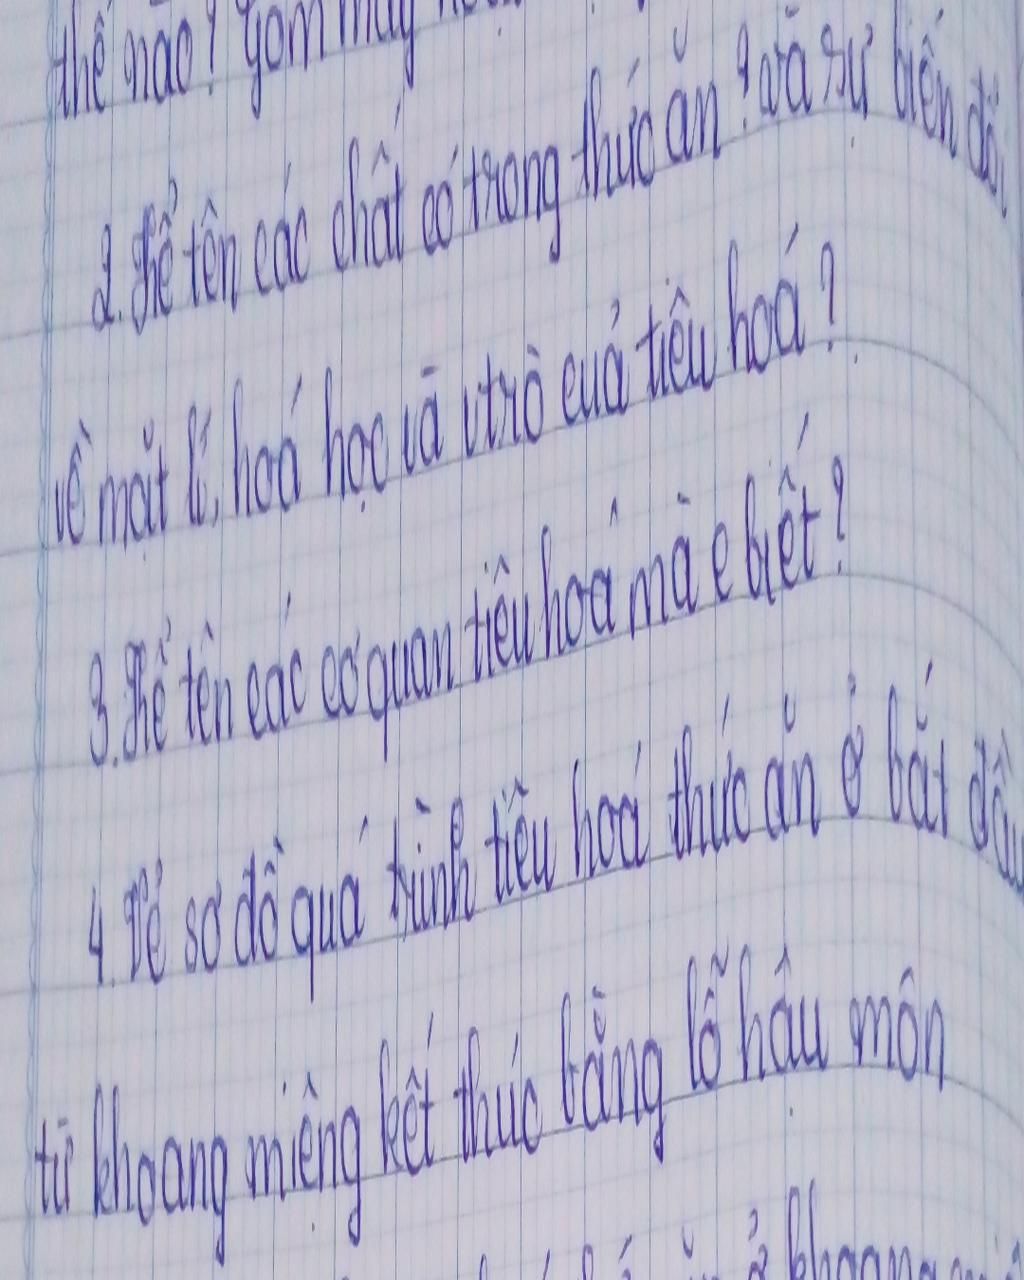 thế nào? gồm mấy
2. Kể tên các chất có trong thức ăn? và sự biến đổi
về mặt lí, hoá học và vtrò của tiêu hoá?
3. Kể tên các cơ quan tiêu hoá mà e biết?
4. Vẽ sơ đồ quá trình tiêu hoá thức ăn ở bắt đầu
từ khoang miệng kết thúc bằng lỗ hậu môn
ở khoang